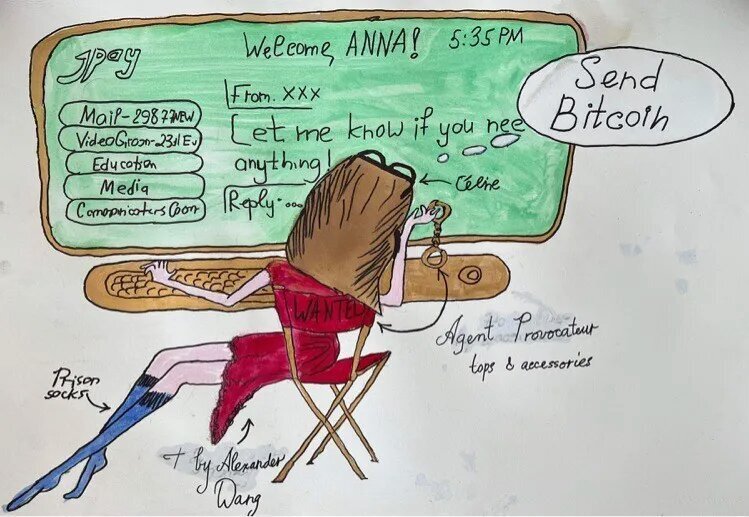 jpay
Welcome, ANNA!
5:35 PM
Send
Bitcoin
From. XXX
Let me know if you nee
anything!
Reply....
Mail-29877NEW
Education
Media
Céline
WANTED
Agent Provocateur
tops & accessories
Prison
socks
T by Alexander
Wang